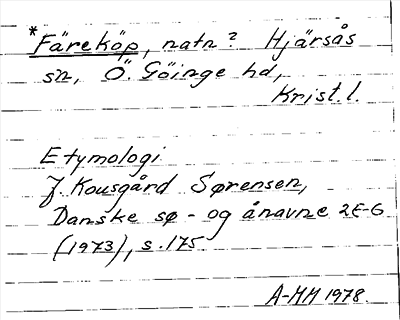 *Färeköp, natn? Hjärsås
sn, Ö. Göinge hd,
Krist. l.
Etymologi
J. Kousgård Sørensen,
Danske sø- og ånavne 2E-G
(1973), s. 175.
A-MM 1978.